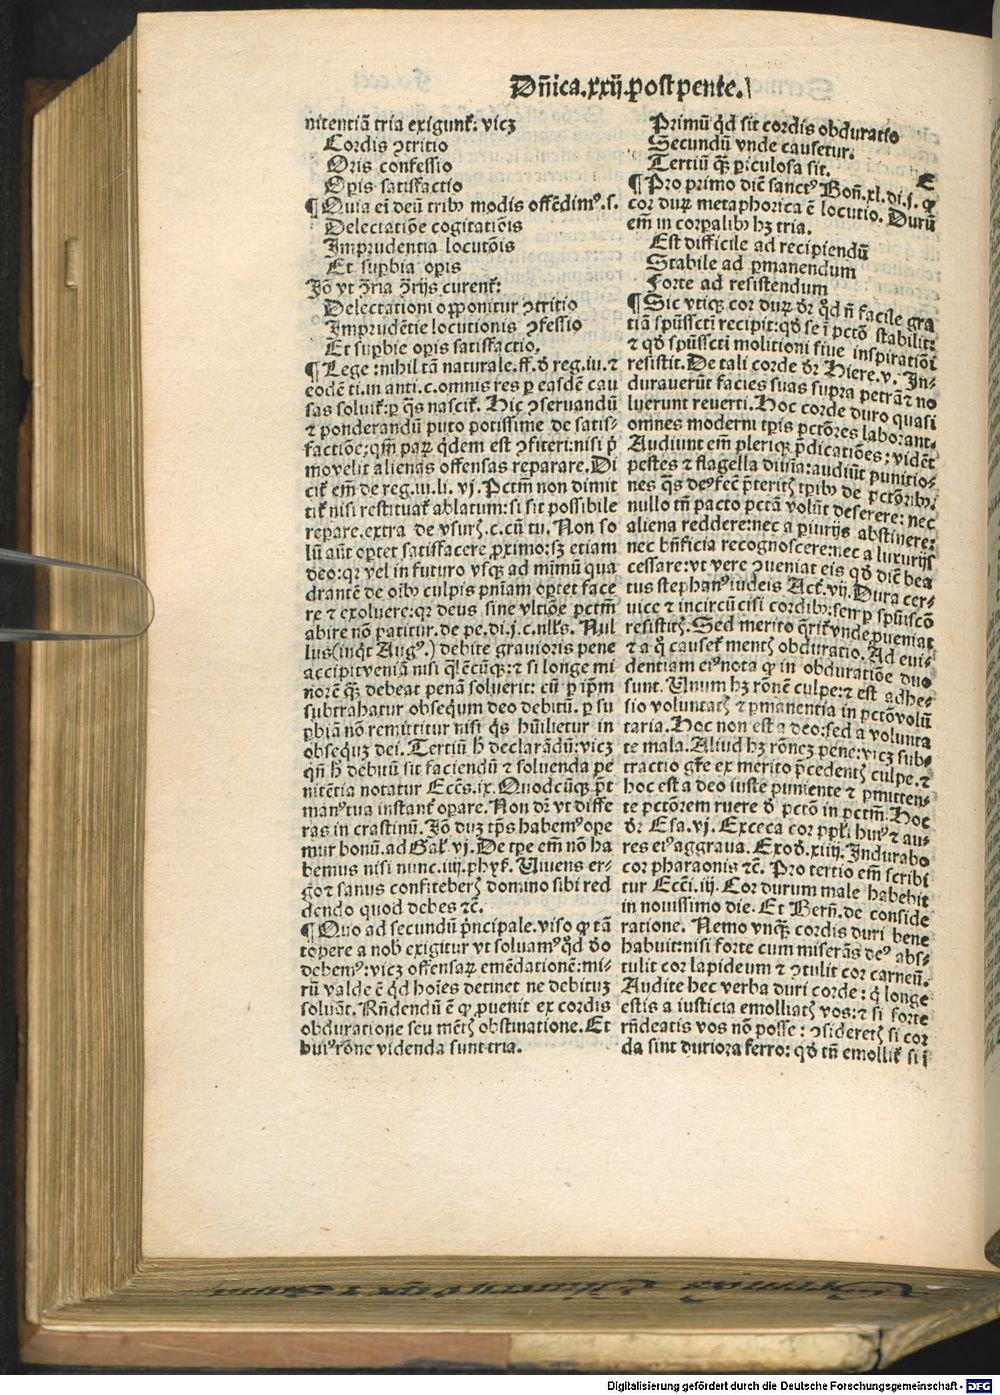 Dn̄ica.xxij.post pente.
nitentiā tria exigunt᷑: vicꝫ
Cordis ꝯtritio
Oris confessio
Oꝑis satisfactio
¶ Quia ei deū tribꝰ modis offēdimꝰ.s.
Delectatiōe cogitatiōis
Imprudentia locutōis
Et suꝑbia oꝑis
Iō vt ꝯ̄ria ꝯ̄rijs curent᷑:
Delectationi opponitur ꝯtritio
Imprudētie locutionis ꝯfessio
Et suꝑbie oꝑis satisfactio.
¶ Lege: nihil tā naturale.ff.ð reg.iu.⁊
eodē ti.in anti.c.omnis res ꝑ easdē cau
sas soluit᷑:ꝑ q̄s nascit᷑. Hic ꝯseruandū
⁊ ponderandū puto potissime de satis-
factiōe:qm̄ parꝫ q̇dem est ꝯfiteri:nisi p̄
mouelit alienas offensas reparare. Di
cit᷑ em̄ de reg.iu.li.vj. Pctm̄ non dimit
tit᷑ nisi restituat᷑ ablatum:si sit possibile
repare.extra de vsurꝭ.c.cū tu. Non so
lū aūt oꝑtet satisfacere ꝓximo:sꝫ etiam
deo:qꝛ vel in futuro vsqꝫ ad mimū qua
drantē de oībꝰ culpis pn̄iam oꝑtet face
re ⁊ exoluere:qꝛ deus sine vltiōe pctm̄
abire nō patitur.de pe.di.j.c.nllꝰs. Nul
lus(inq̇t Augꝰ.)debite grauioris pene
accipit veniā nisi q̄lēcūqꝫ:⁊ si longe mi
norē qꝫ debeat penā soluerit: cū ꝑ ip̄m
subtrahatur obsequm deo debitū.ꝑ su
ꝑbiā nō remittitur nisi q̇s hūilietur in
obsequꝫ dei. Tertiū h̄ declarādū:vicꝫ
qn̄ h̄ debitū sit faciendū ⁊ soluenda pe
nitētia notatur Eccēs.ix. Quodcūqꝫ p̄t
manꝰ tua instant᷑ oꝑare. Non dꝛ vt diffe
ras in crastinū. Iō duꝫ tp̄s habemꝰ oꝑe
mur bonū.ad Gal᷑.vj. De tꝑe em̄ nō ha
bemus nisi nunc.iiij.phyꝭ. Viuens er-
go ⁊ sanus confiteberꝭ domino sibi red
dendo quod debes ⁊c̄.
¶ Quo ad secundū p̄ncipale.viso ꝙ tā
topere a nob exigitur vt soluamꝰ q̇d ðo
debemꝰ:vicꝫ offensaꝝ emēdationē:mi-
rū valde ē q̇d hoīes detinet ne debituꝫ
soluāt. Rn̄dendū ē ꝙ ꝓuenit ex cordis
obduratione seu mētꝭ obstinatione. Et
huiꝰ rōne videnda sunt tria.
Primū q̇d sit cordis obduratio
Secundū vnde causetur.
Tertiū qꝫ ꝑiculosa sit.
¶ Pro primo diē sanctꝰ Bon̄.xl.di.j.ꝙ
cor durꝫ metaphorica ē locutio. Durū
em̄ in corꝑalibꝰ hꝫ tria.
Est difficile ad recipiendū
Stabile ad ꝑmanendum
Forte ad resistendum
¶ Sic vtiqꝫ cor durꝫ dꝛ q̇d n̄ facile gra
tiā spūsscti recipit:qð se ī pctō stabilit:
⁊ qð spūsscti molitioni siue inspiratiōi
resistit. De tali corde dꝛ Hiere.v. In-
durauerūt facies suas supra petrā ⁊ no
luerunt reuerti. Hoc corde duro quasi
omnes moderni tꝑis pctōres laborant.
Audiunt em̄ plerique p̄dicatiōes: vidēt
pestes ⁊ flagella diuīa:audiūt punitio-
nes q̄s deꝰ fec̄ p̄teritꝭ tꝑibꝰ de pctōribꝰ:
nullo tn̄ pacto pctā volūt deserere: nec
aliena reddere:nec a ꝑiurijs abstinere:
nec bn̄ficia recognoscere:nec a luxurijs
cessare:vt vere ꝯueniat eis qð diē bea
tus stephanꝰ iudeis Act᷑.vij. Dura cer-
uice ⁊ incircūcisi cordibꝰ:semꝑ spūiscō
resistitꝭ. Sed merito q̄rit᷑ vnde ꝓueniat
⁊ a q̇ causet᷑ mentꝭ obduratio. Ad eui-
dentiam eiꝰ nota ꝙ in obduratiōe duo
sunt. Unum hꝫ rōnē culpe:⁊ est adhe-
sio voluntatꝭ ⁊ ꝑmanentia in pctō volū
taria. Hoc non est a deo:sed a volunta
te mala. Aliud hꝫ rōneꝫ pene:vicꝫ sub-
tractio gr̄e ex merito p̄cedentꝭ culpe.⁊
hoc est a deo iuste puniente ⁊ ꝑmitten-
te pctōrem ruere ð pctō in pctm̄. Hoc
dꝛ Esa.vj. Exceca cor ppl̄i huiꝰ ⁊ au-
res eiꝰ aggraua. Exoð.xiiij. Indurabo
cor pharaonis ⁊c̄. Pro tertio em̄ scribi
tur Eccī.iij. Cor durum male habebit
in nouissimo die. Et Bern̄.de conside
ratione. Nemo vnqꝫ cordis duri bene
habuit:nisi forte cum miserās deꝰ abs-
tulit cor lapideum ⁊ ꝯtulit cor carneū.
Audite hec verba duri corde: q̇ longe
estis a iusticia emolliatꝭ vos:⁊ si forte
rn̄deatis vos nō posse: ꝯsideretꝭ si cor
da sint duriora ferro: qð tn̄ emollit᷑ si ī
Digitalisierung gefördert durch die Deutsche Forschungsgemeinschaft - DFG